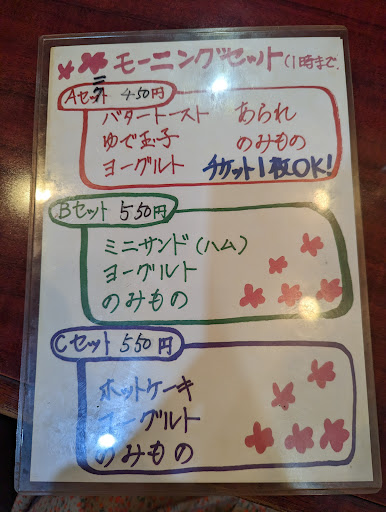 モーニングセット(11時まで
Aセット 450円
バタートースト あられ
ゆで玉子 のみもの
ヨーグルト チケット1枚OK!
Bセット 550円
ミニサンド(ハム)
ヨーグルト
のみもの
Cセット 550円
ホットケーキ
ヨーグルト
のみもの